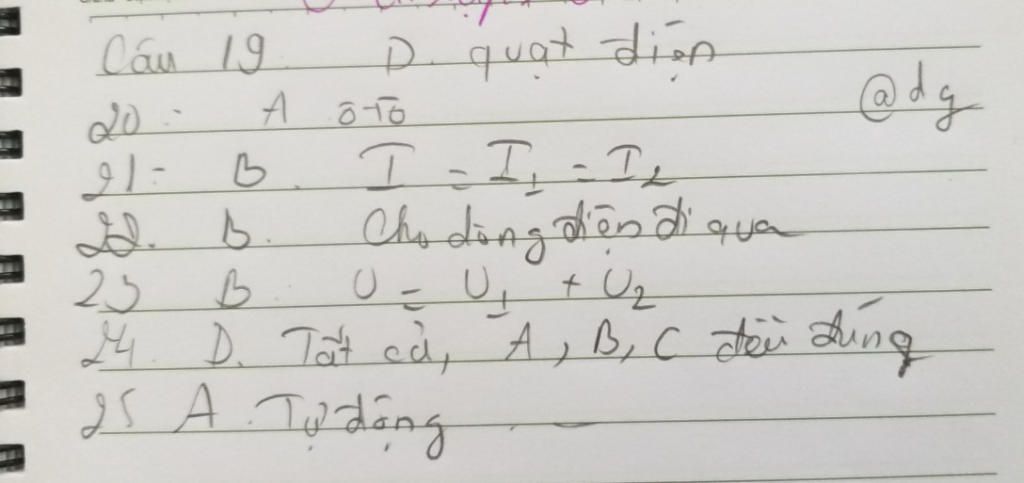 Câu 19. D. quạt điện
20: A ô tô @dg
21: B. I = I1 = I2
22. B. Cho dòng điện đi qua
23 B. U = U1 + U2
24. D. Tất cả, A, B, C đều đúng
25 A. Tự động